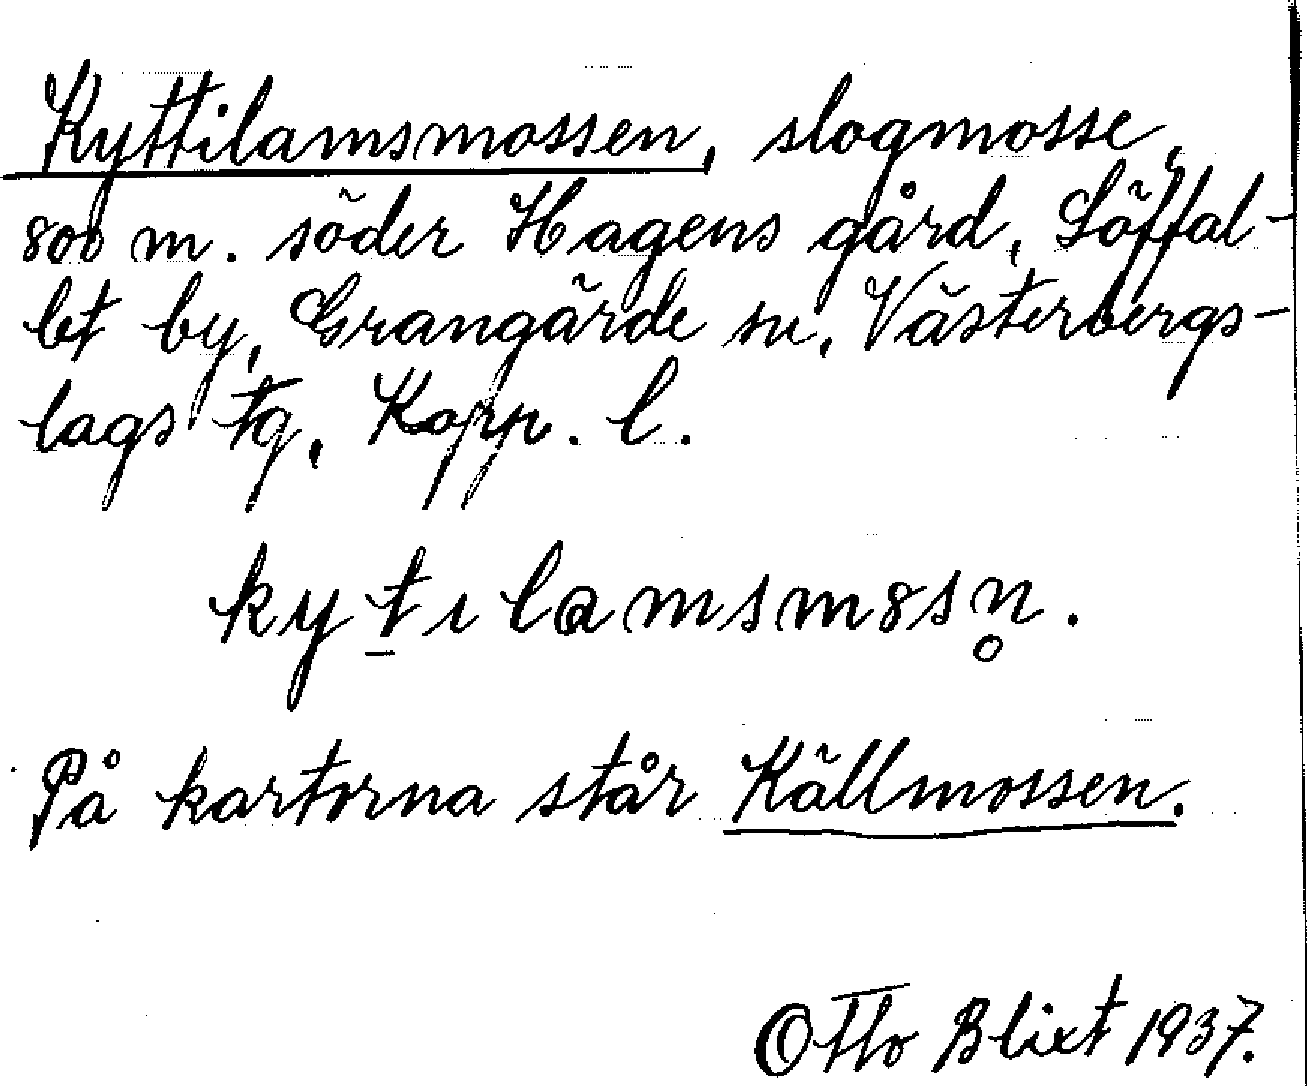 Kyttilamsmossen, slogmosse,
800 m. söder Hagens gård, Löffal-
let by, Grangärde sn, Västerbergs-
lags tg, Kopp. l.
kyt̲ılamsmɷsn̥.
På kartorna står Källmossen.
Otto Blixt 1937.